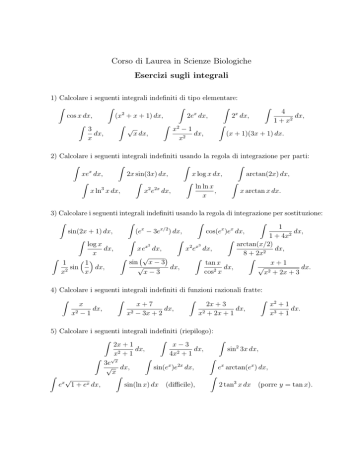 Corso di Laurea in Scienze Biologiche
Esercizi sugli integrali
1) Calcolare i seguenti integrali indefiniti di tipo elementare:
∫ cos x dx, ∫ (x² + x + 1) dx, ∫ 2eˣ dx, ∫ 2ˣ dx, ∫ 4/(1 + x²) dx,
∫ 3/x dx, ∫ √x dx, ∫ (x² − 1)/x² dx, ∫ (x + 1)(3x + 1) dx.
2) Calcolare i seguenti integrali indefiniti usando la regola di integrazione per parti:
∫ xeˣ dx, ∫ 2x sin(3x) dx, ∫ x log x dx, ∫ arctan(2x) dx,
∫ x ln³ x dx, ∫ x²e²ˣ dx, ∫ (ln ln x)/x , ∫ x arctan x dx.
3) Calcolare i seguenti integrali indefiniti usando la regola di integrazione per sostituzione:
∫ sin(2x + 1) dx, ∫ (eˣ − 3e^(x/2)) dx, ∫ cos(eˣ)eˣ dx, ∫ 1/(1 + 4x²) dx,
∫ (log x)/x dx, ∫ xe^(x²) dx, ∫ x²e^(x³) dx, ∫ arctan(x/2)/(8 + 2x²) dx,
∫ 1/x² sin (1/x) dx, ∫ sin (√x − 3)/(√x − 3) dx, ∫ (tan x)/(cos² x) dx, ∫ (x + 1)/√(x² + 2x + 3) dx.
4) Calcolare i seguenti integrali indefiniti di funzioni razionali fratte:
∫ x/(x² − 1) dx, ∫ (x + 7)/(x² − 3x + 2) dx, ∫ (2x + 3)/(x² + 2x + 1) dx, ∫ (x² + 1)/(x³ + 1) dx.
5) Calcolare i seguenti integrali indefiniti (riepilogo):
∫ (2x + 1)/(x² + 1) dx, ∫ (x − 3)/(4x² + 1) dx, ∫ sin³ 3x dx,
∫ 3e^(√x)/√x dx, ∫ sin(eˣ)e²ˣ dx, ∫ eˣ arctan(eˣ) dx,
∫ eˣ√(1 + eˣ) dx, ∫ sin(ln x) dx (difficile), ∫ 2 tan³ x dx (porre y = tan x).